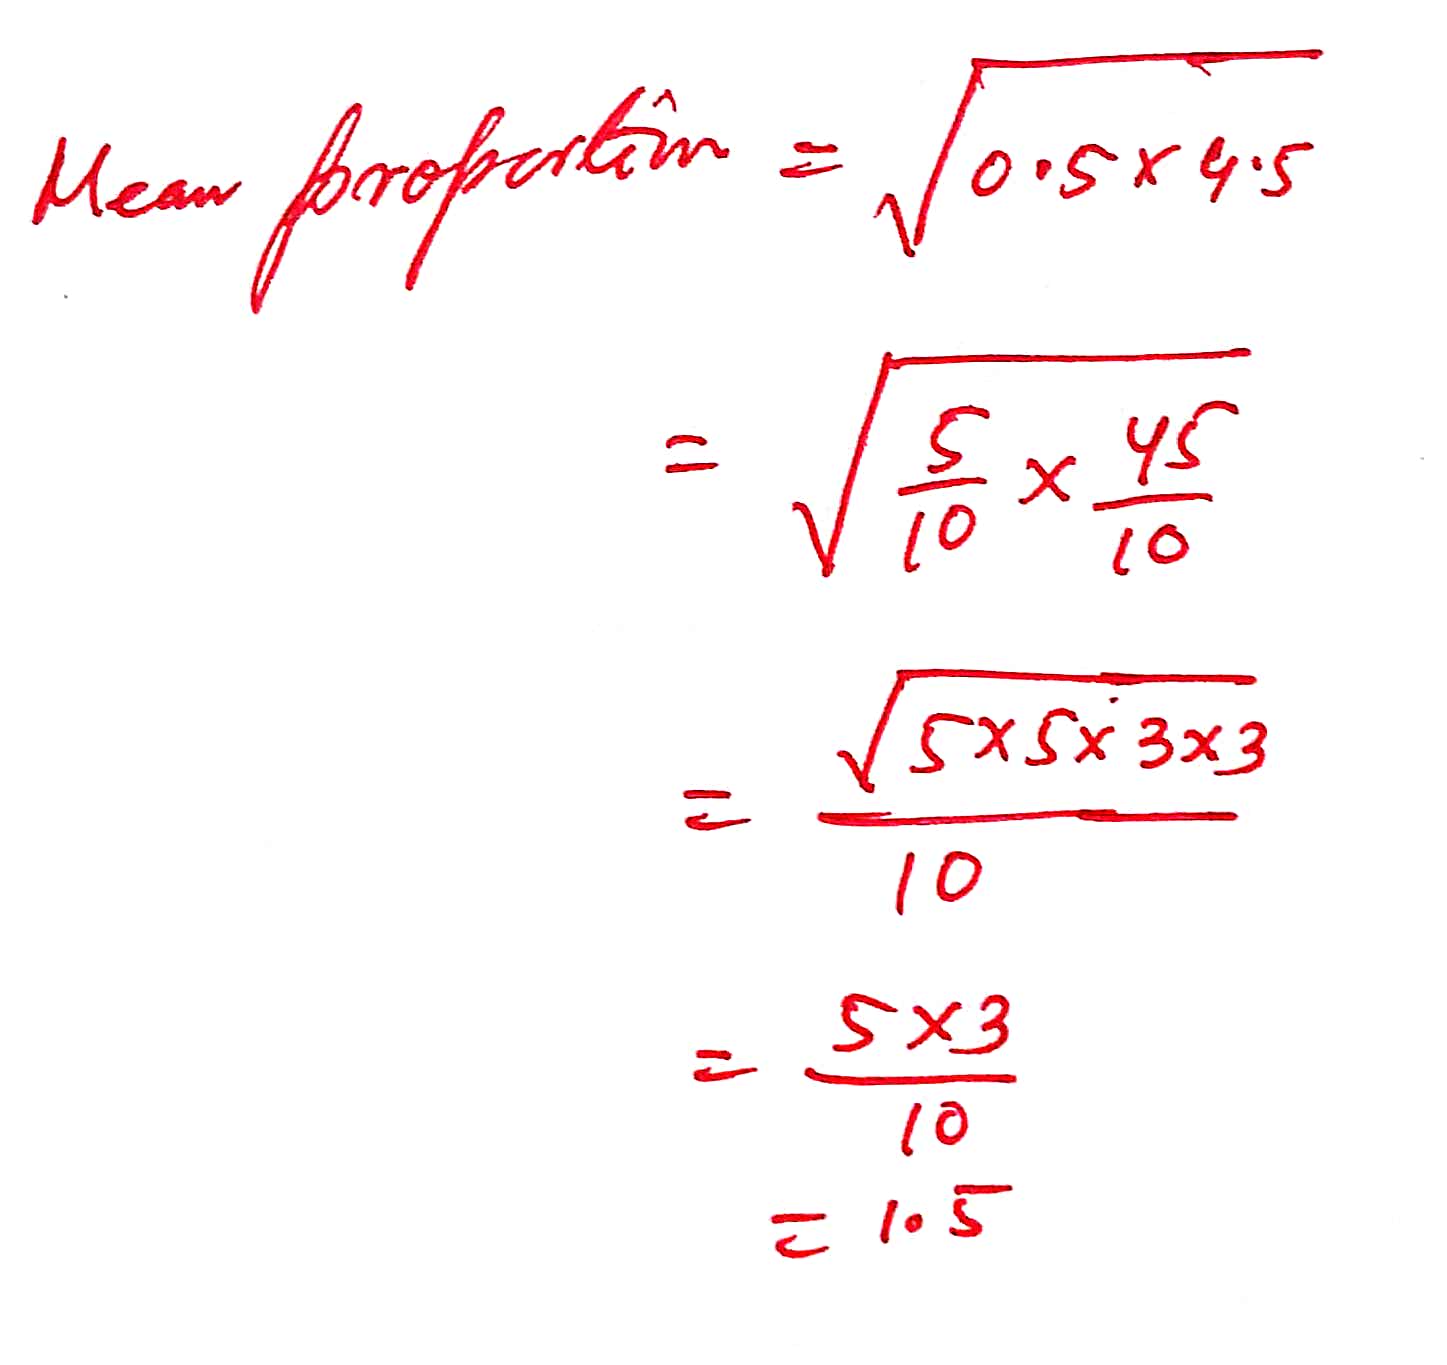 Mean proportion = √(0.5 × 4.5)
= √(5/10 × 45/10)
= √(5×5×3×3)/10
= (5×3)/10
= 1.5